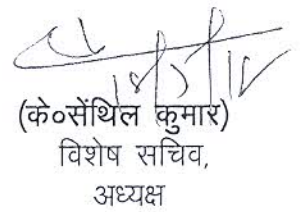 (के०सेंथिल कुमार)
विशेष सचिव,
अध्यक्ष